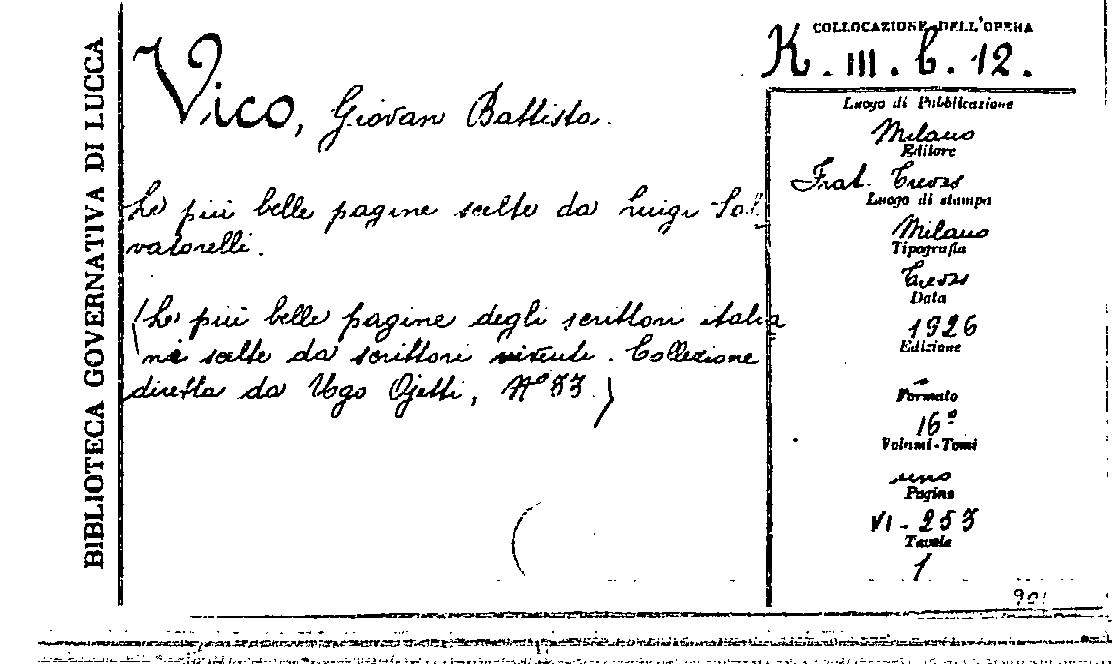 BIBLIOTECA GOVERNATIVA DI LUCCA
Vico, Giovan Battista.
Le più belle pagine scelte da Luigi Sal
vatorelli.
(Le più belle pagine degli scrittori italia
ni scelte da scrittori viventi. Collezione
diretta da Ugo Ojetti, N° 53.)
COLLOCAZIONE DELL'OPERA
K. III. b. 12.
Luogo di Pubblicazione
Milano
Editore
Frat. Treves
Luogo di stampa
Milano
Tipografia
Treves
Data
1926
Edizione
Formato
16º
Volumi-Tomi
uno
Pagine
VI - 253
Tavole
1